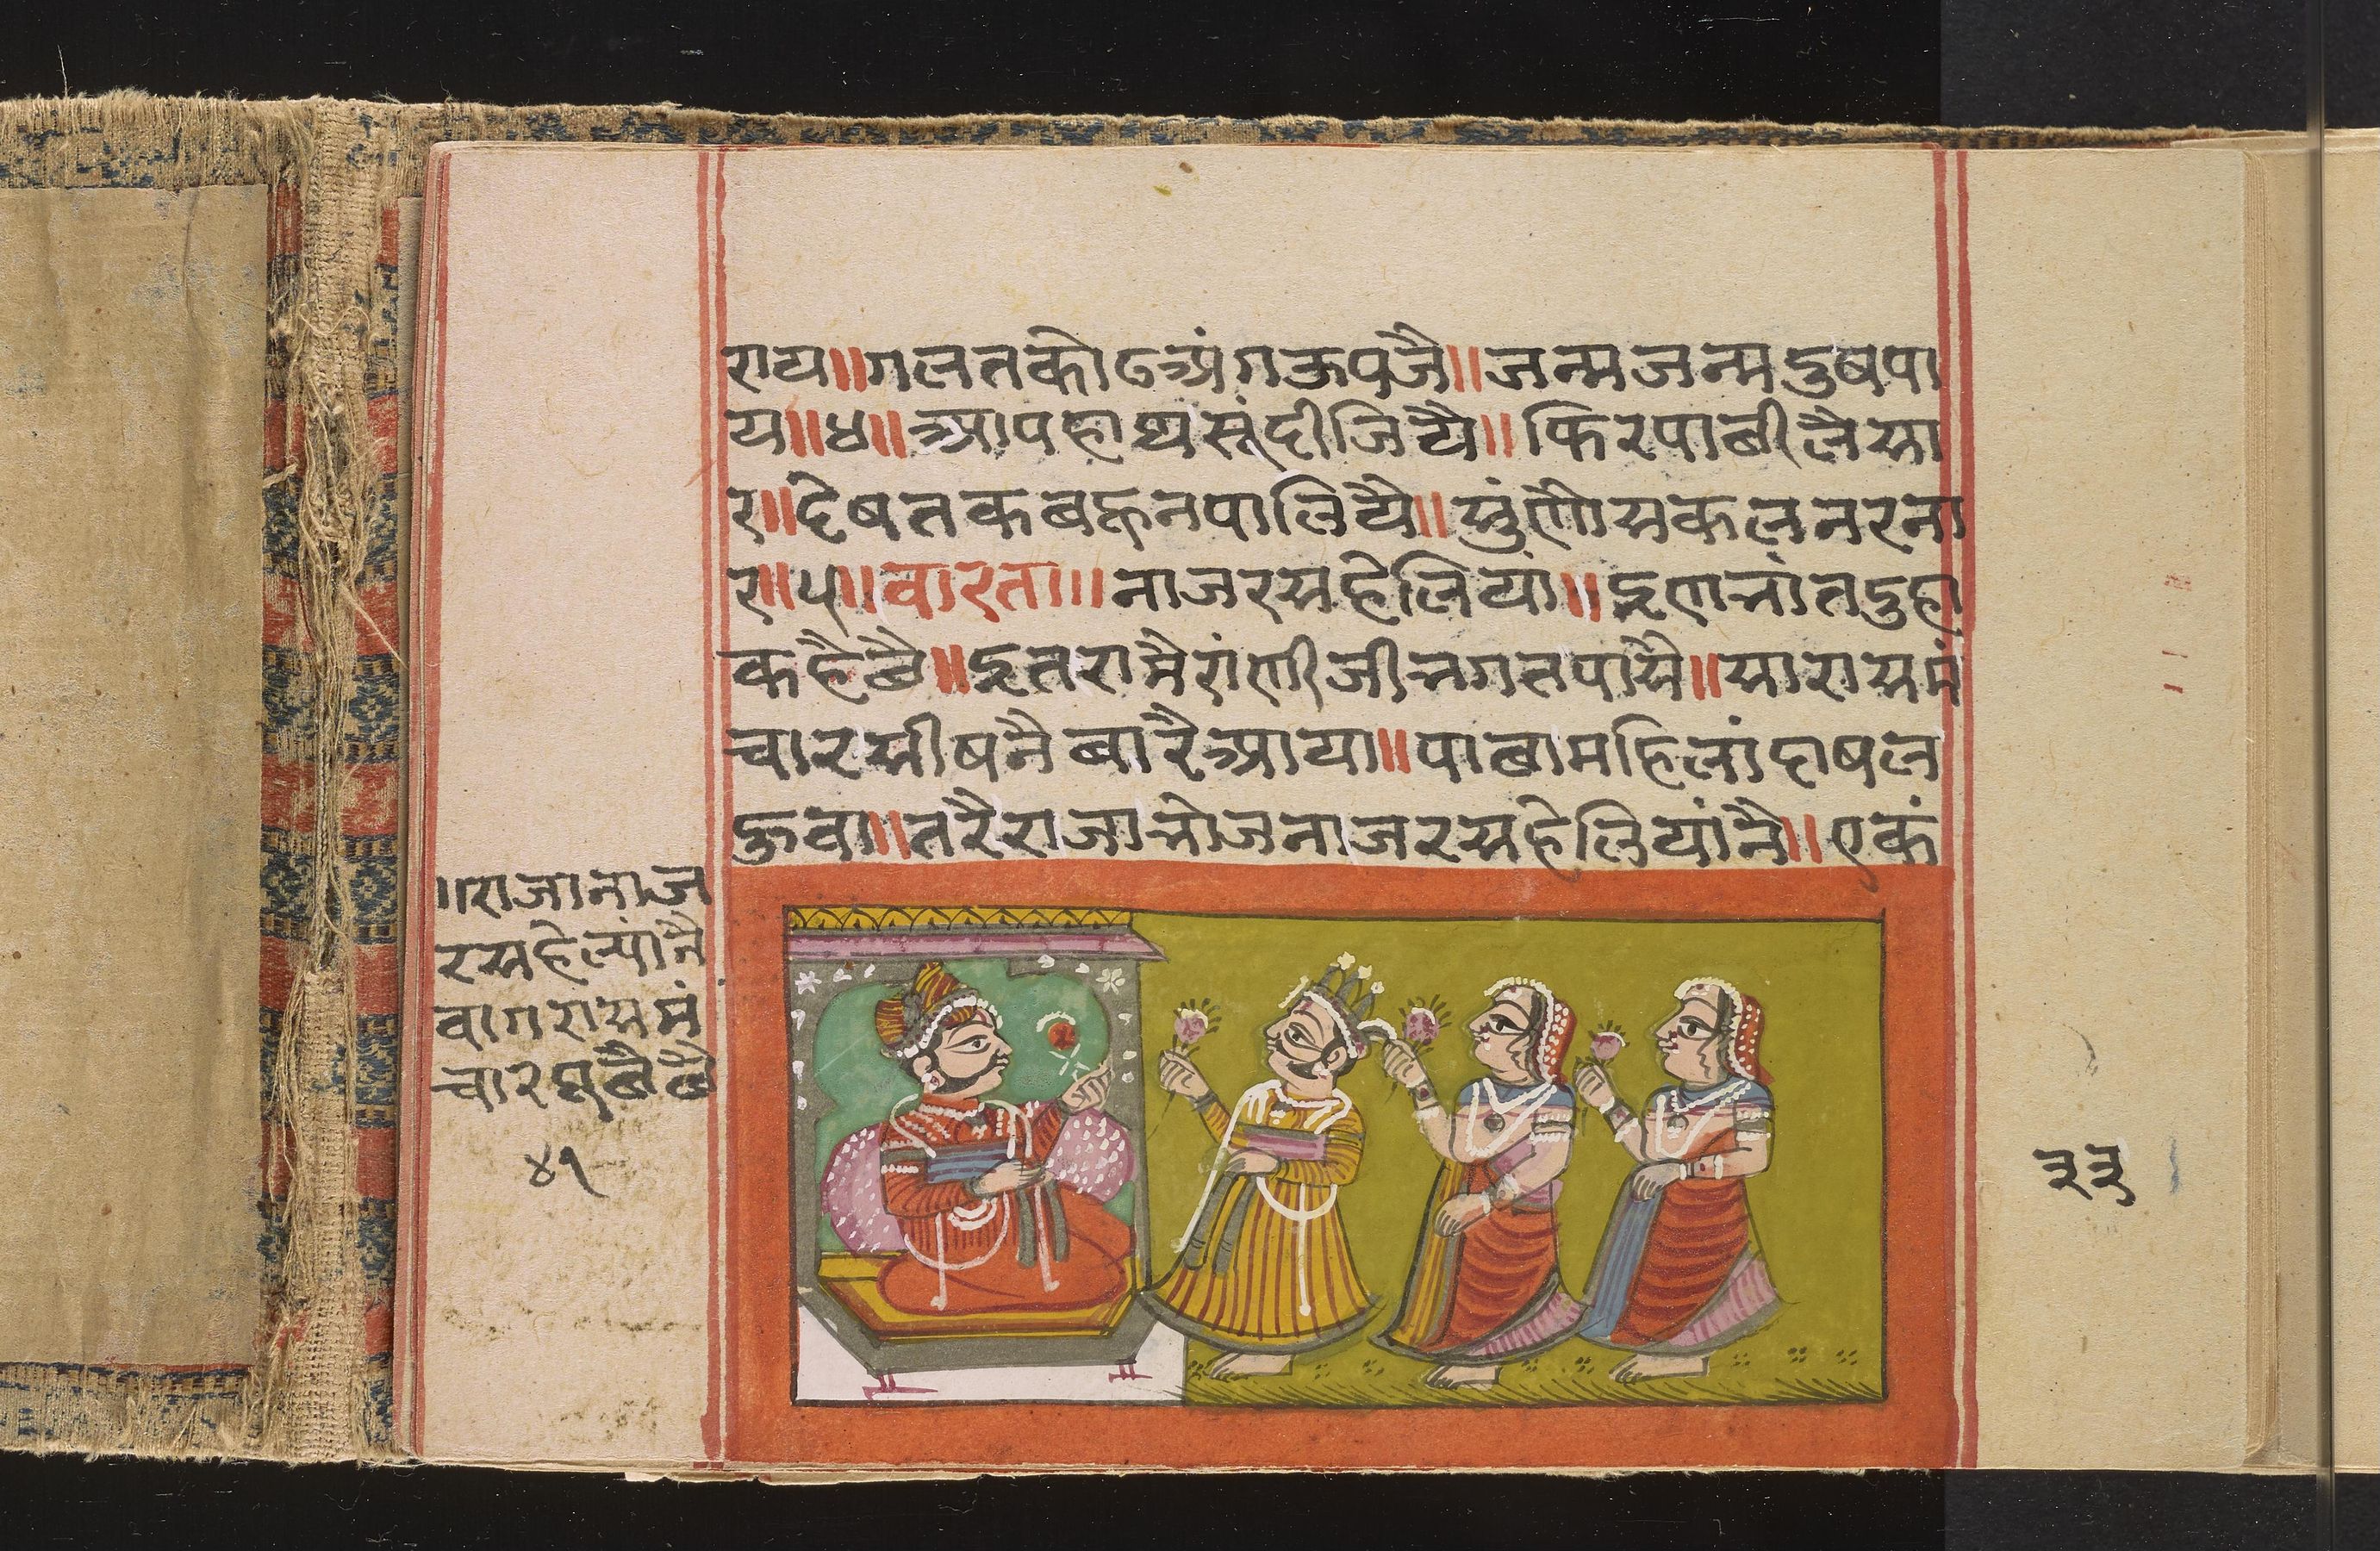 राय॥गलतकोढअंगऊपजै॥जन्मजन्मदुषपा
य॥४॥आपहाथसूंदीजियै॥फिरपाछीलैसा
र॥देषतकबहूनपालियै॥सुंणौसकलनरना
र॥५॥वारता॥।नाजरसहेलियां॥इणभांतदुहा
कहैछै॥इतरामैरांणीजीभगतपासै॥सारासमं
चारसीषनैबारैआया॥पाछामहिलांदाषल
हुवा॥तरैराजाभोजनाजरसहेलियांनै॥एकं
॥राजानाज
रसहेल्यांनै
वागरासमं
चारपूछैछै
४१
३३